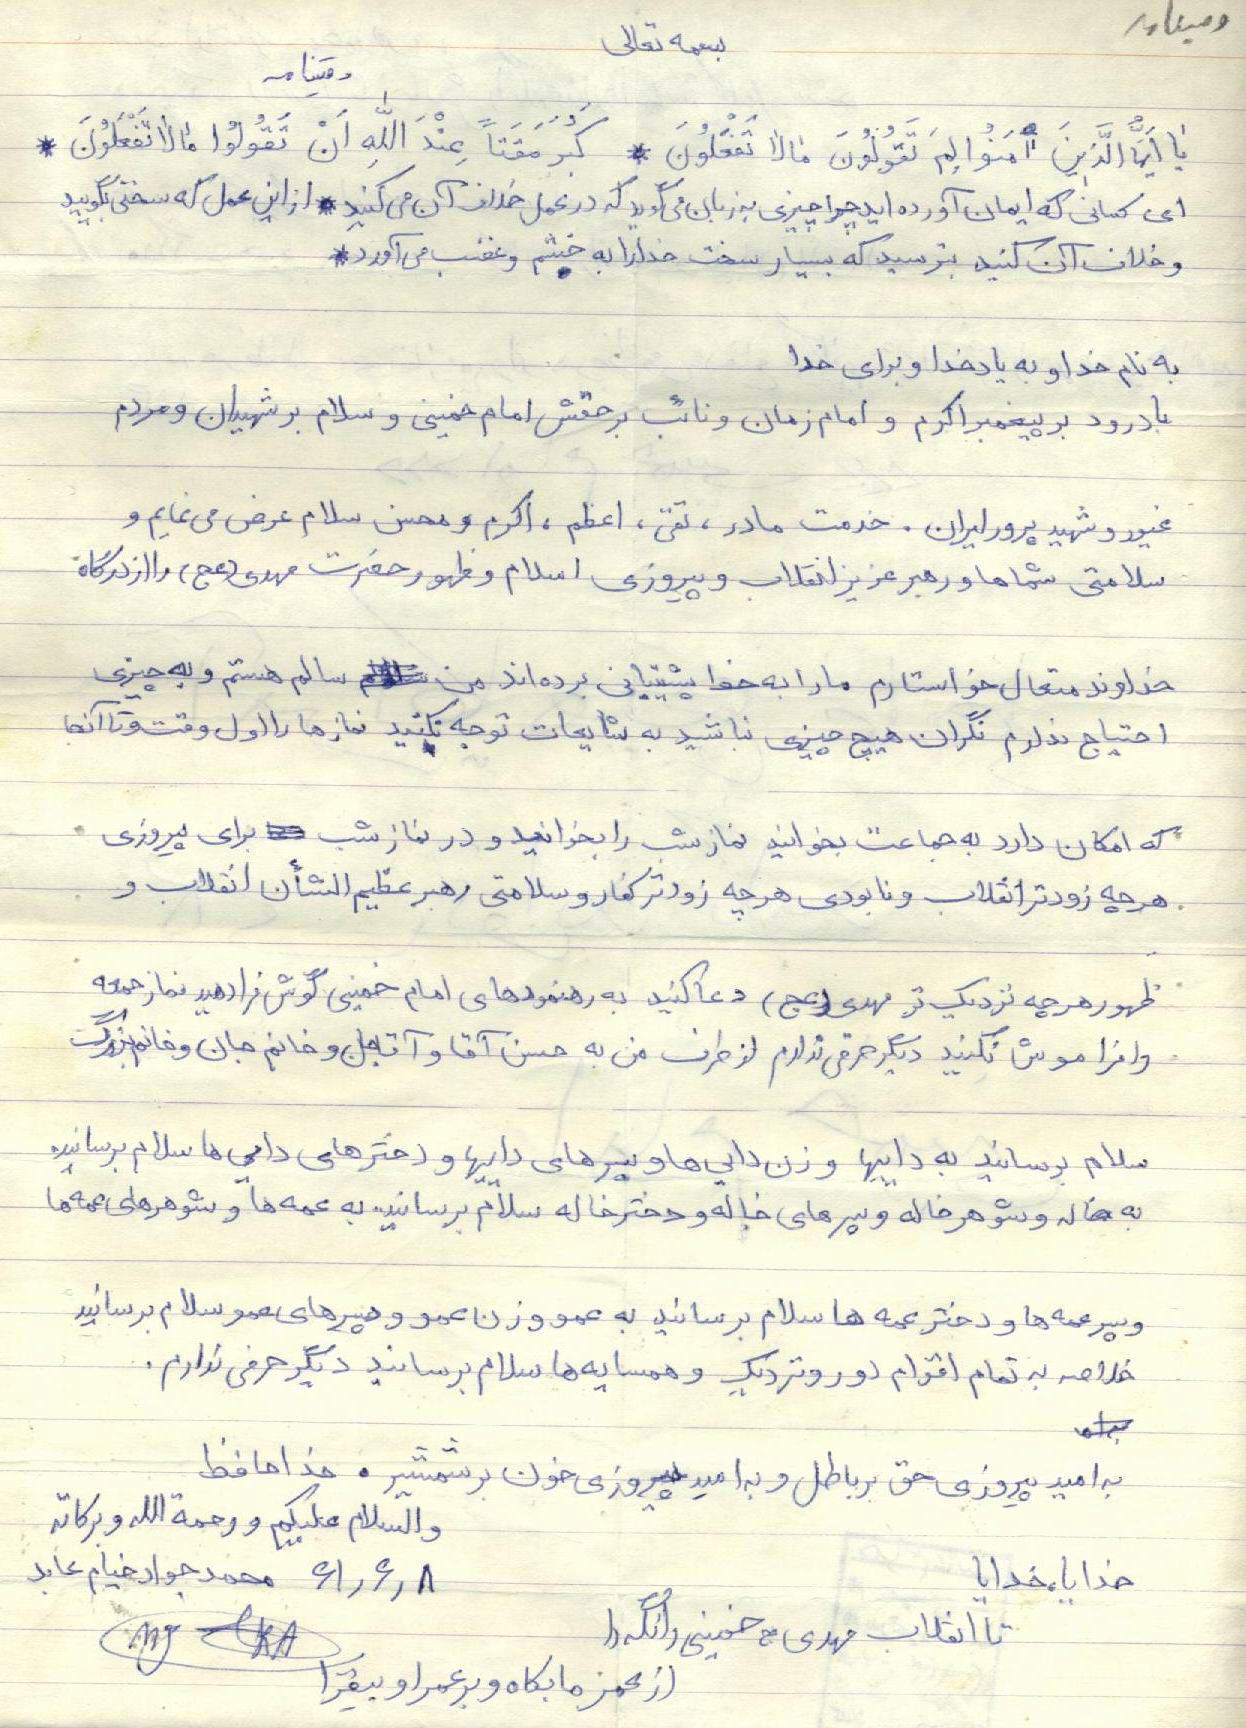 وصیتنامه
بسمه تعالی
وصیتنامه
یا اَیُّهَا الَّذینَ آمَنُوا لِمَ تَقُولُونَ مٰالاٰ تَفْعَلُونَ * کَبُرَ مَقْتَاً عِنْدَ اللّهِ اَنْ تَقُولُوا مٰالاٰ تَفْعَلُونَ *
ای کسانی که ایمان آورده اید چرا چیزی به زبان می گوید که در عمل خلاف آن می کنید * از این عمل که سخنی بگویید
و خلاف آن کنید بترسید که بسیار سخت خدا را به خشم و غضب می آورد *
به نام خدا و به یاد خدا و برای خدا
با درود بر پیغمبر اکرم و امام زمان و نائب بر حقش امام خمینی و سلام بر شهیدان و مردم
غیور و شهید پرور ایران . خدمت مادر ، تقی ، اعظم ، اکرم و محسن سلام عرض می نمایم و
سلامتی شماها و رهبر عزیز انقلاب و پیروزی اسلام و ظهور حضرت مهدی (عج) را از درگاه
خداوند متعال خواستارم ما را به خط پشتیبانی برده اند من سالم هستم و به چیزی
احتیاج ندارم نگران هیچ چیزی نباشید به شایعات توجه نکنید نمازها را اول وقت و تا آنجا
که امکان دارد به جماعت بخوانید نماز شب را بخوانید و در نماز شب برای پیروزی
هرچه زودتر انقلاب و نابودی هرچه زودتر کفار و سلامتی رهبر عظیم الشأن انقلاب و
ظهور هرچه نزدیک تر مهدی (عج) دعا کنید به رهنمودهای امام خمینی گوش فرا دهید نماز جمعه
را فراموش نکنید دیگر حرفی ندارم از طرف من به حسن آقا و آقاجان و خانم جان و خانم بزرگ
سلام برسانید به داییها و زن دایی ها و پسرهای داییها و دخترهای دایی ها سلام برسانید.
به خاله و شوهر خاله و پسرهای خاله و دختر خاله سلام برسانید. به عمه ها و شوهرهای عمه ها
و پسر عمه ها و دختر عمه ها سلام برسانید به عمو و زن عمو و پسرهای عمو سلام برسانید
خلاصه به تمام اقوام دور و نزدیک و همسایه ها سلام برسانید دیگر حرفی ندارم .
به امید پیروزی حق بر باطل و به امید پیروزی خون بر شمشیر . خداحافظ
والسلام علیکم و رحمة الله و برکاته
۶۱٫۶٫۸ محمد جواد خیام عابد
خدایا، خدایا
تا انقلاب مهدی خمینی را نگه دار
از عمر ما بکاه و بر عمر او بیفزا